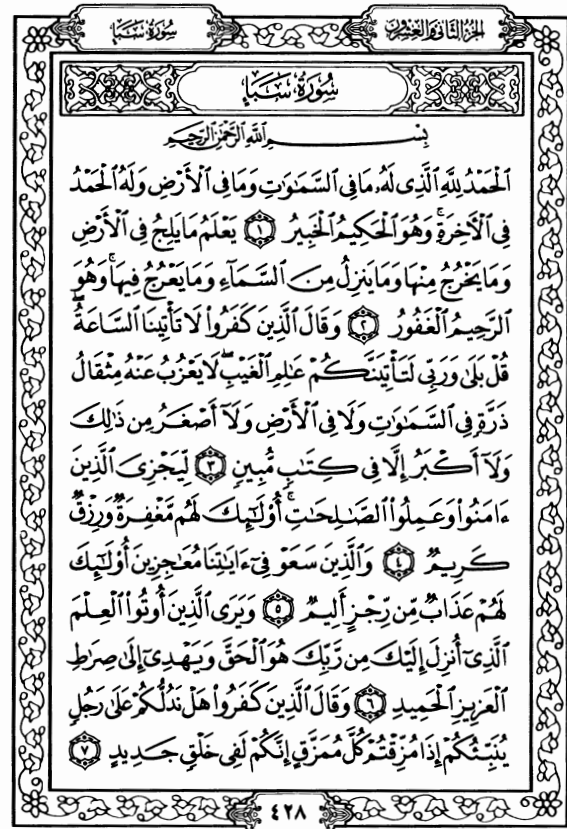 الجزء الثاني والعشرون
سورة سبإ
سُورَةُ سَبَإٍ
بِسْمِ ٱللَّهِ ٱلرَّحْمَٰنِ ٱلرَّحِيمِ
ٱلْحَمْدُ لِلَّهِ ٱلَّذِى لَهُۥ مَا فِى ٱلسَّمَٰوَٰتِ وَمَا فِى ٱلْأَرْضِ وَلَهُ ٱلْحَمْدُ
فِى ٱلْءَاخِرَةِ ۚ وَهُوَ ٱلْحَكِيمُ ٱلْخَبِيرُ ١ يَعْلَمُ مَا يَلِجُ فِى ٱلْأَرْضِ
وَمَا يَخْرُجُ مِنْهَا وَمَا يَنزِلُ مِنَ ٱلسَّمَآءِ وَمَا يَعْرُجُ فِيهَا ۚ وَهُوَ
ٱلرَّحِيمُ ٱلْغَفُورُ ٢ وَقَالَ ٱلَّذِينَ كَفَرُوا۟ لَا تَأْتِينَا ٱلسَّاعَةُ ۖ
قُلْ بَلَىٰ وَرَبِّى لَتَأْتِيَنَّكُمْ عَٰلِمِ ٱلْغَيْبِ ۖ لَا يَعْزُبُ عَنْهُ مِثْقَالُ
ذَرَّةٍ فِى ٱلسَّمَٰوَٰتِ وَلَا فِى ٱلْأَرْضِ وَلَآ أَصْغَرُ مِن ذَٰلِكَ
وَلَآ أَكْبَرُ إِلَّا فِى كِتَٰبٍ مُّبِينٍ ٣ لِّيَجْزِىَ ٱلَّذِينَ
ءَامَنُوا۟ وَعَمِلُوا۟ ٱلصَّٰلِحَٰتِ ۚ أُو۟لَٰٓئِكَ لَهُم مَّغْفِرَةٌ وَرِزْقٌ
كَرِيمٌ ٤ وَٱلَّذِينَ سَعَوْ فِىٓ ءَايَٰتِنَا مُعَٰجِزِينَ أُو۟لَٰٓئِكَ
لَهُمْ عَذَابٌ مِّن رِّجْزٍ أَلِيمٌ ٥ وَيَرَى ٱلَّذِينَ أُوتُوا۟ ٱلْعِلْمَ
ٱلَّذِىٓ أُنزِلَ إِلَيْكَ مِن رَّبِّكَ هُوَ ٱلْحَقَّ وَيَهْدِىٓ إِلَىٰ صِرَٰطِ
ٱلْعَزِيزِ ٱلْحَمِيدِ ٦ وَقَالَ ٱلَّذِينَ كَفَرُوا۟ هَلْ نَدُلُّكُمْ عَلَىٰ رَجُلٍ
يُنَبِّئُكُمْ إِذَا مُزِّقْتُمْ كُلَّ مُمَزَّقٍ إِنَّكُمْ لَفِى خَلْقٍ جَدِيدٍ ٧
٤٢٨